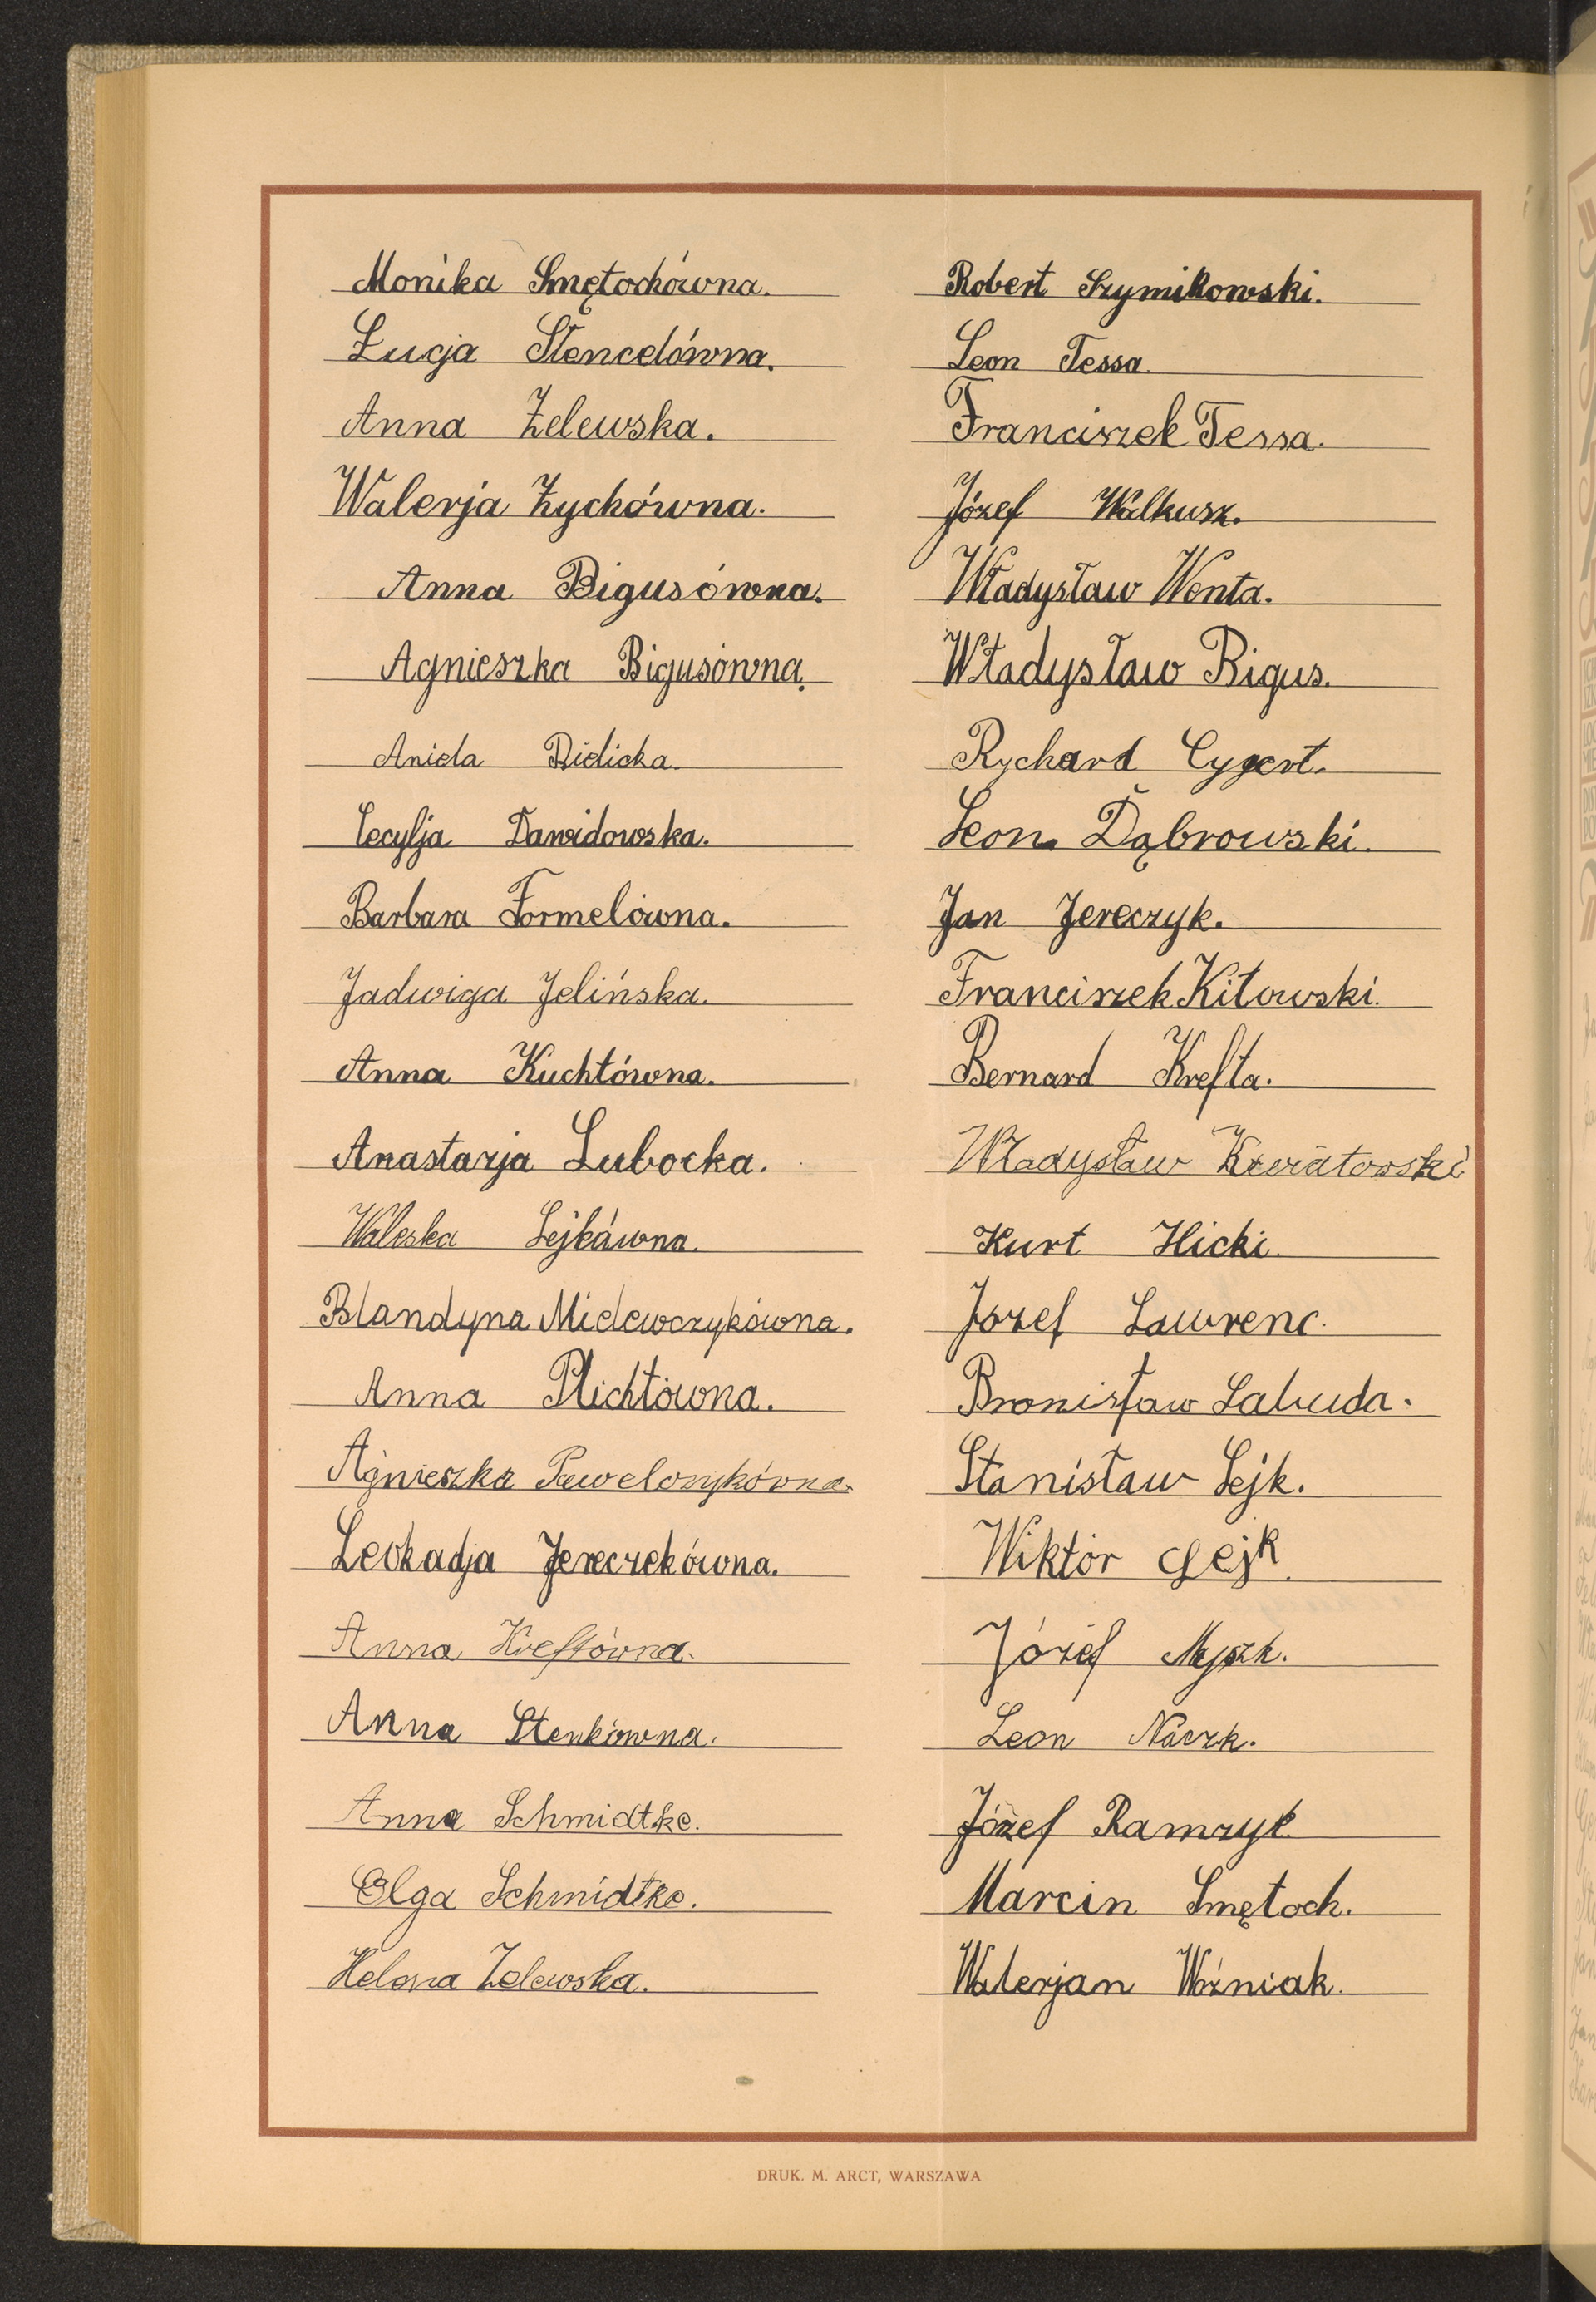 Monika Smętochówna.
Łucja Stencelówna.
Anna Żelewska.
Walerja Żychówna.
Anna Bigusówna.
Agnieszka Bigusówna.
Aniela Bielicka.
Cecylja Dawidowska.
Barbara Formelówna.
Jadwiga Jelińska.
Anna Kuchtówna.
Anastazja Lubocka.
Waleska Lejkówna.
Blandyna Mielewczykówna.
Anna Plichtówna.
Agnieszka Pawelczykówna.
Leokadja Jereczekówna.
Anna Kreftówna.
Anna Stenkówna.
Anna Schmidtke.
Olga Schmidtke.
Helena Zelewska.
Robert Szymikowski.
Leon Tessa
Franciszek Tessa.
Józef Walkusz.
Władysław Wenta.
Władysław Bigus.
Rychard Cygert.
Leon Dąbrowski.
Jan Jereczyk.
Franciszek Kitowski.
Bernard Krefta.
Władysław Kwiatowski
Kurt Hicki.
Józef Lawrenc.
Bronisław Labuda.
Stanisław Lejk.
Wiktor Lejk.
Józef Myszk.
Leon Naczk.
Józef Ramzyk.
Marcin Smętoch.
Walerjan Woźniak.
DRUK. M. ARCT, WARSZAWA